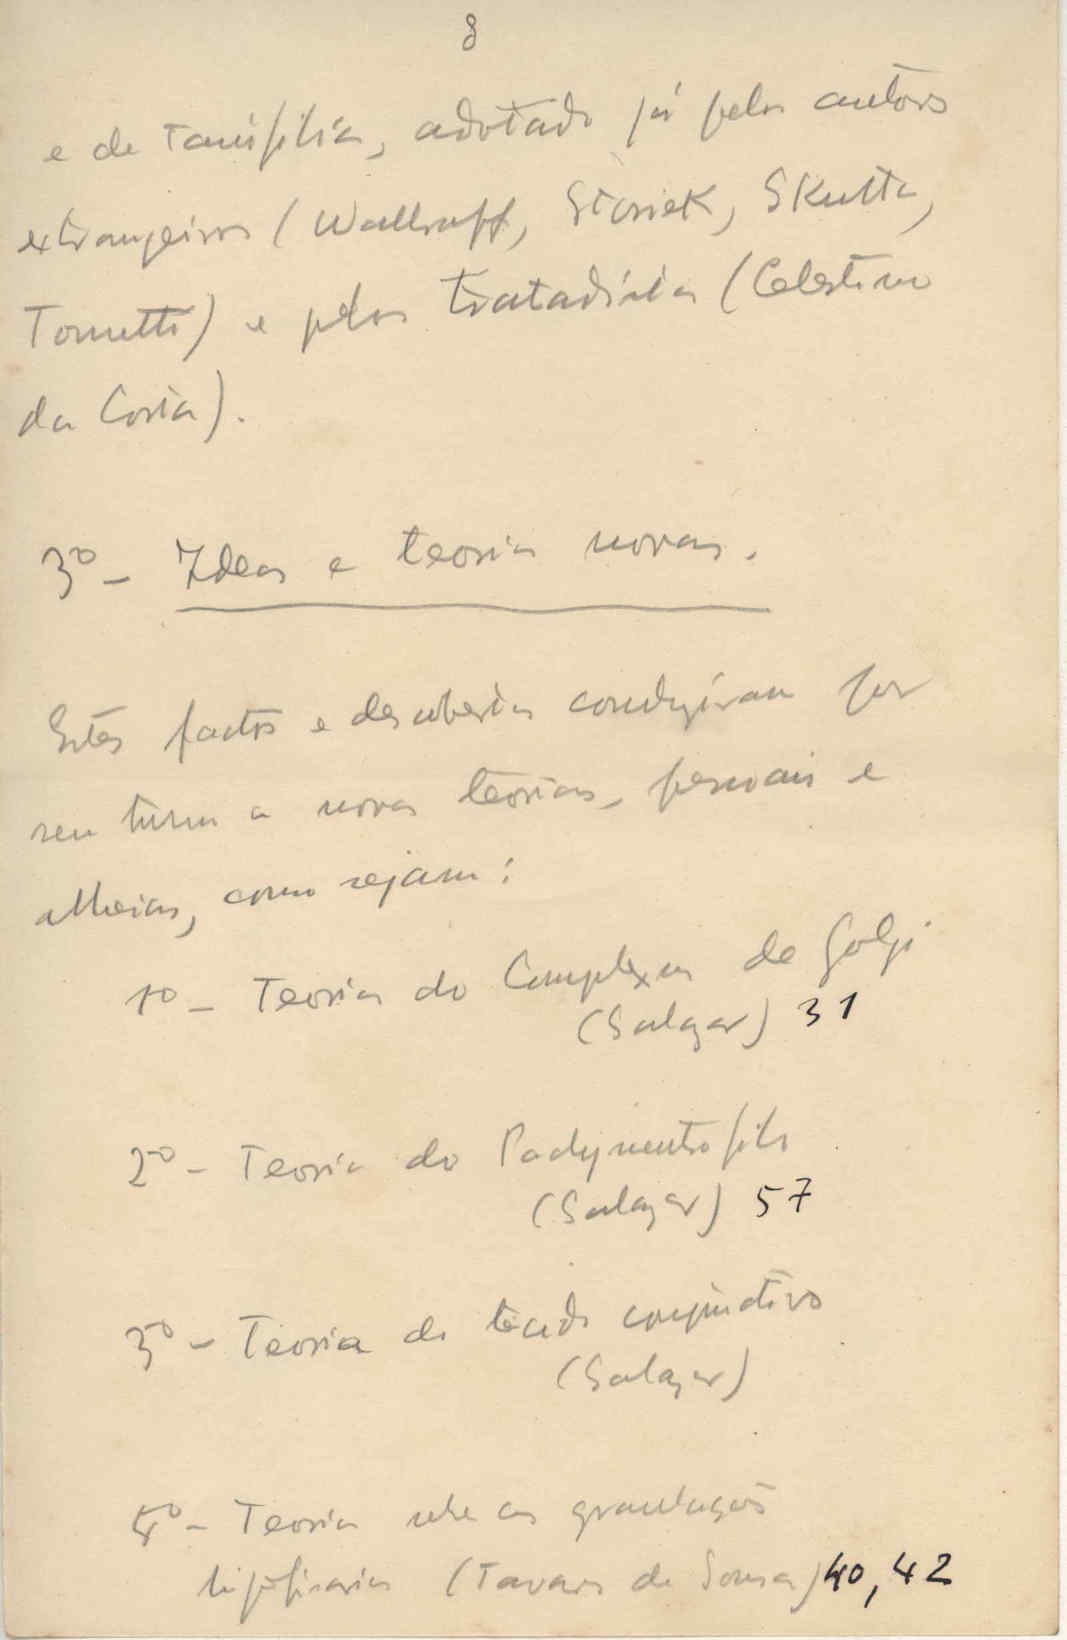 8
e de Tanifilia, adotado já pelos autores
extrangeiros (Wallraff, Storiek, Skutta,
Tonutti) e pelos tratadistas (Celestino
da Costa).
3º - Ideas e teorias novas.
Estes factos e descubertas conduziram por
seu turno a novas teorias, pessoais e
alheias, como sejam:
1º - Teoria do Complexus de Golgi
(Salazar) 31
2º - Teoria do
(Salazar) 57
3º - Teoria do tecido conjuntivo
(Salazar)
4º - Teoria sobre as granulações
(Tavares de Sousa) 40, 42